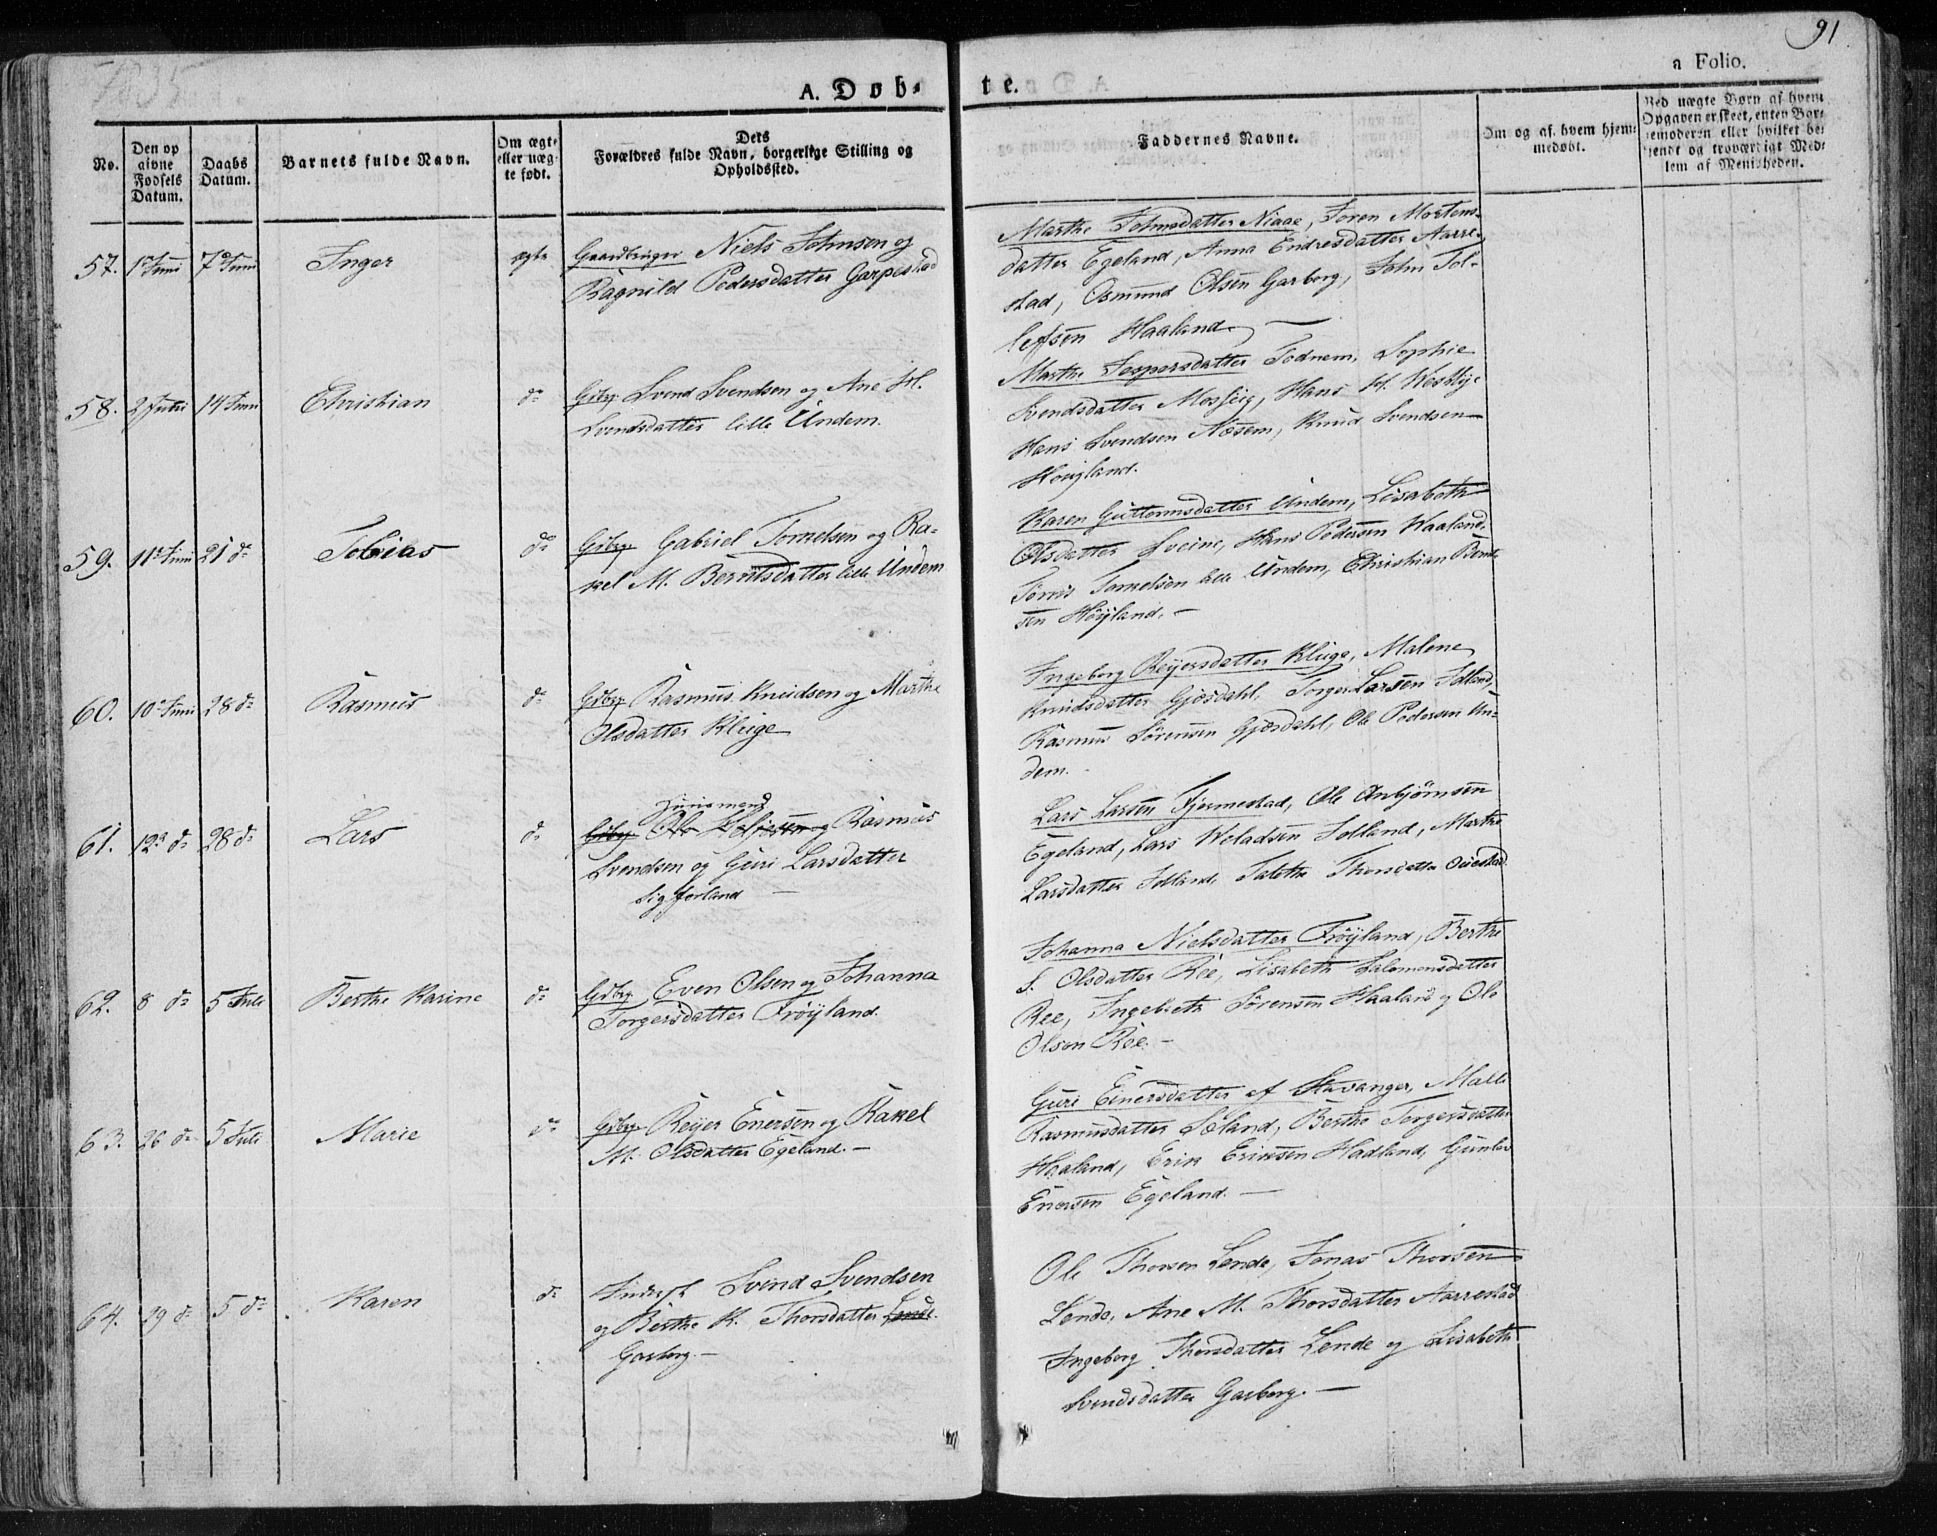 1835
91
a Folio.
A. Døb-
te.
No.
Den op
givne
Fødsels
Datum.
Daabs
Datum.
Barnets fulde Navn.
Om ægte
eller uæg-
te født.
Dets
Forældres fulde Navn, borgerlige Stilling og
Opholdssted.
Faddernes Navne.
Om og af hvem hjem-
medøbt.
Ved uægte Børn af hvem
Opgaven er skeet, enten Bar-
nemoderen eller hvilket be-
kjendt og troværdigt Med-
lem af Menigheden.
57. 1ste Juni 7de Juni Inger ægte
Gaardbruger Niels Johnsen og
Ragnild Pedersdatter Garpestad
Marthe Johnsdatter Niaae, Joren Mortens-
datter Egeland, Anna Endresdatter Aarre-
stad, Osmund Olsen Garborg, John Tol-
lefsen Haaland.
58. 2 Juni 14 Juni Christian do
Gdbrg. Svend Svendsen og Ane M.
Svendsdatter lille Undem.
Marthe Jespersdatter Todnem, Sophie
Svendsdatter Mossig, Hans H. Westlye
Hans Svendsen Næsem, Knud Svendsen
Houyland.
59. 11te Juni 21 do Tobias do
Gdbrg. Gabriel Tornelsen og Ra-
kel M. Berntsdatter lille Undem
Karen Guttormsdatter Undem, Lisabeth
Olsdatter Sveine, Hans Pedersen Waaland,
Tørris Tornelsen lille Undem, Christian Bernt-
sen Høyland.
60. 10de Juni 28 do Rasmus do
Gdbrg. Rasmus Knudsen og Marthe
Olsdatter Kluge
Ingeborg Reyersdatter Kluge, Malene
Knudsdatter Gjesdahl, Torger Larsen Idland,
Rasmus Sørensen Gjesdahl, Ole Pedersen Un-
dem.
Huusmand
61. 12te do 28 do Lars do
Gdbrg. Ole og Rasmus
Svendsen og Guri Larsdatter
Sigforland
Lars Larsen Fjermestad, Ole Anbjørnsen
Egeland, Lars Weladsen Idland, Marthe
Larsdatter Idland, Taletta Thorsdatter Ouestad
62. 8 do 5 Juli Berthe Karine do
Gdbrg. Even Olsen og Johanna
Torgersdatter Frøyland.
Johanna Nielsdatter Frøyland, Berthe
S. Olsdatter Ree, Lisabeth Salomonsdatter
Ree, Ingebreth Sørensen Haaland og Ole
Olsen Ree.
63. 26 do 5 Juli Marie do
Gdbrg. Reyer Enersen og Rakel
M. Olsdatter Egeland.
Guri Einersdatter af Stavanger, Malle
Rasmusdatter Sæland, Berthe Torgersdatter
Haaland, Erik Eriksen Hadland, Gunlev
Enersen Egeland.
64. 29 do 5 do Karen do
Svend Svendsen
og Berthe K. Thorsdatter Lende
Garborg.
Ole Thorsen Lende, Jonas Thorsen
Lende, Ane M. Thorsdatter Aarrestad
Ingeborg Thorsdatter Lende og Lisabeth
Svendsdatter Garborg.